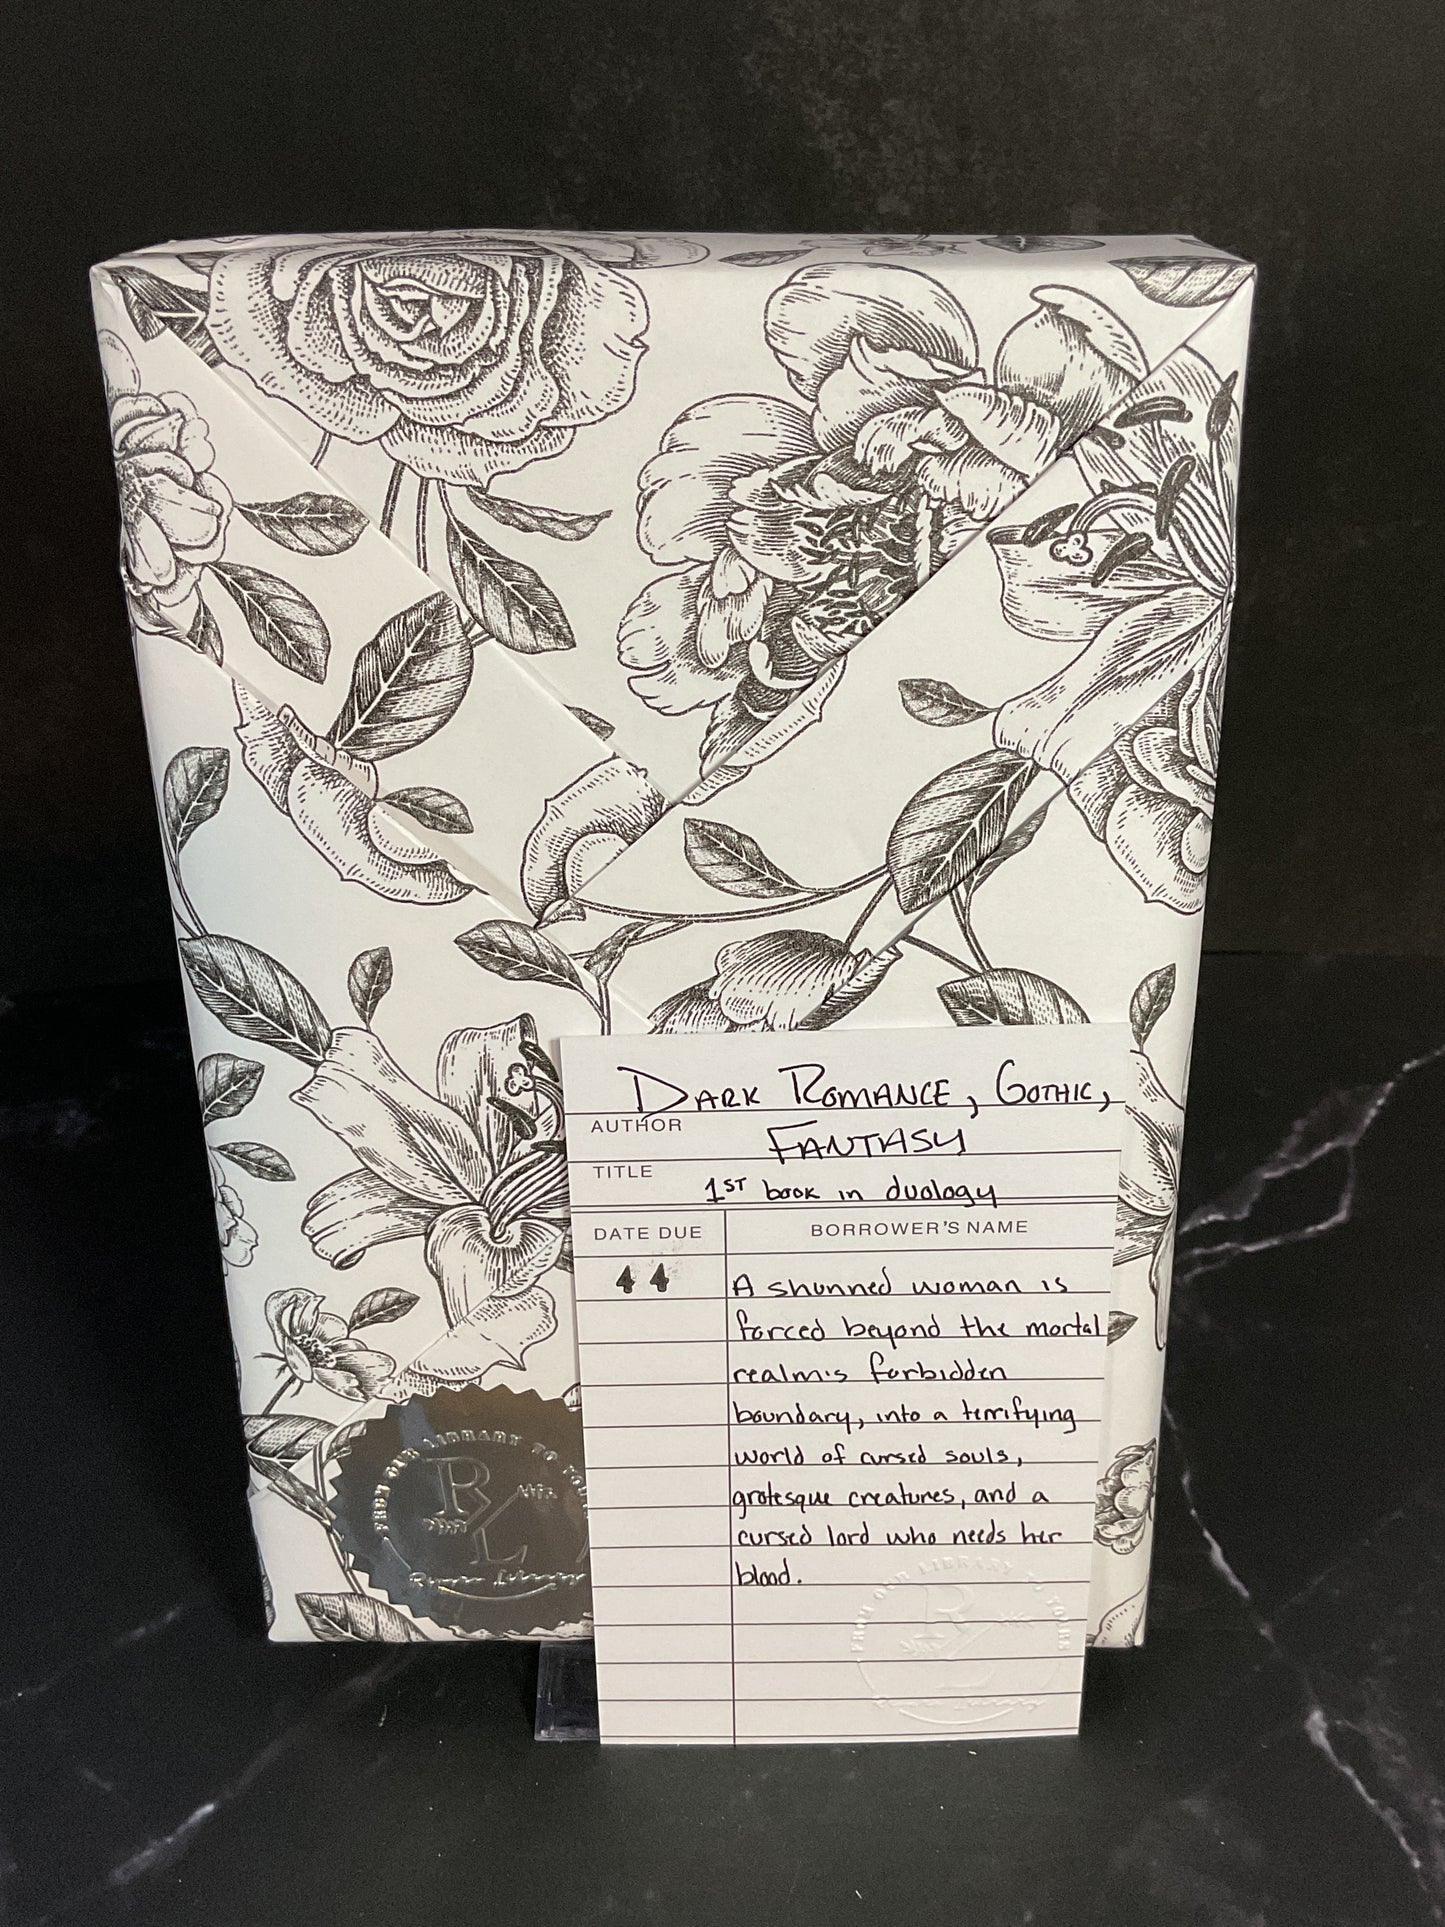 DARK ROMANCE, GOTHIC,
AUTHOR
FANTASY
TITLE
1ST book in duology
DATE DUE
BORROWER'S NAME
44
A shunned woman is
forced beyond the mortal
realm's forbidden
boundary, into a terrifying
world of cursed souls,
grotesque creatures, and a
cursed lord who needs her
blood.
FROM OUR LIBRARY TO YOURS
RL
FROM OUR LIBRARY TO YOURS
RL